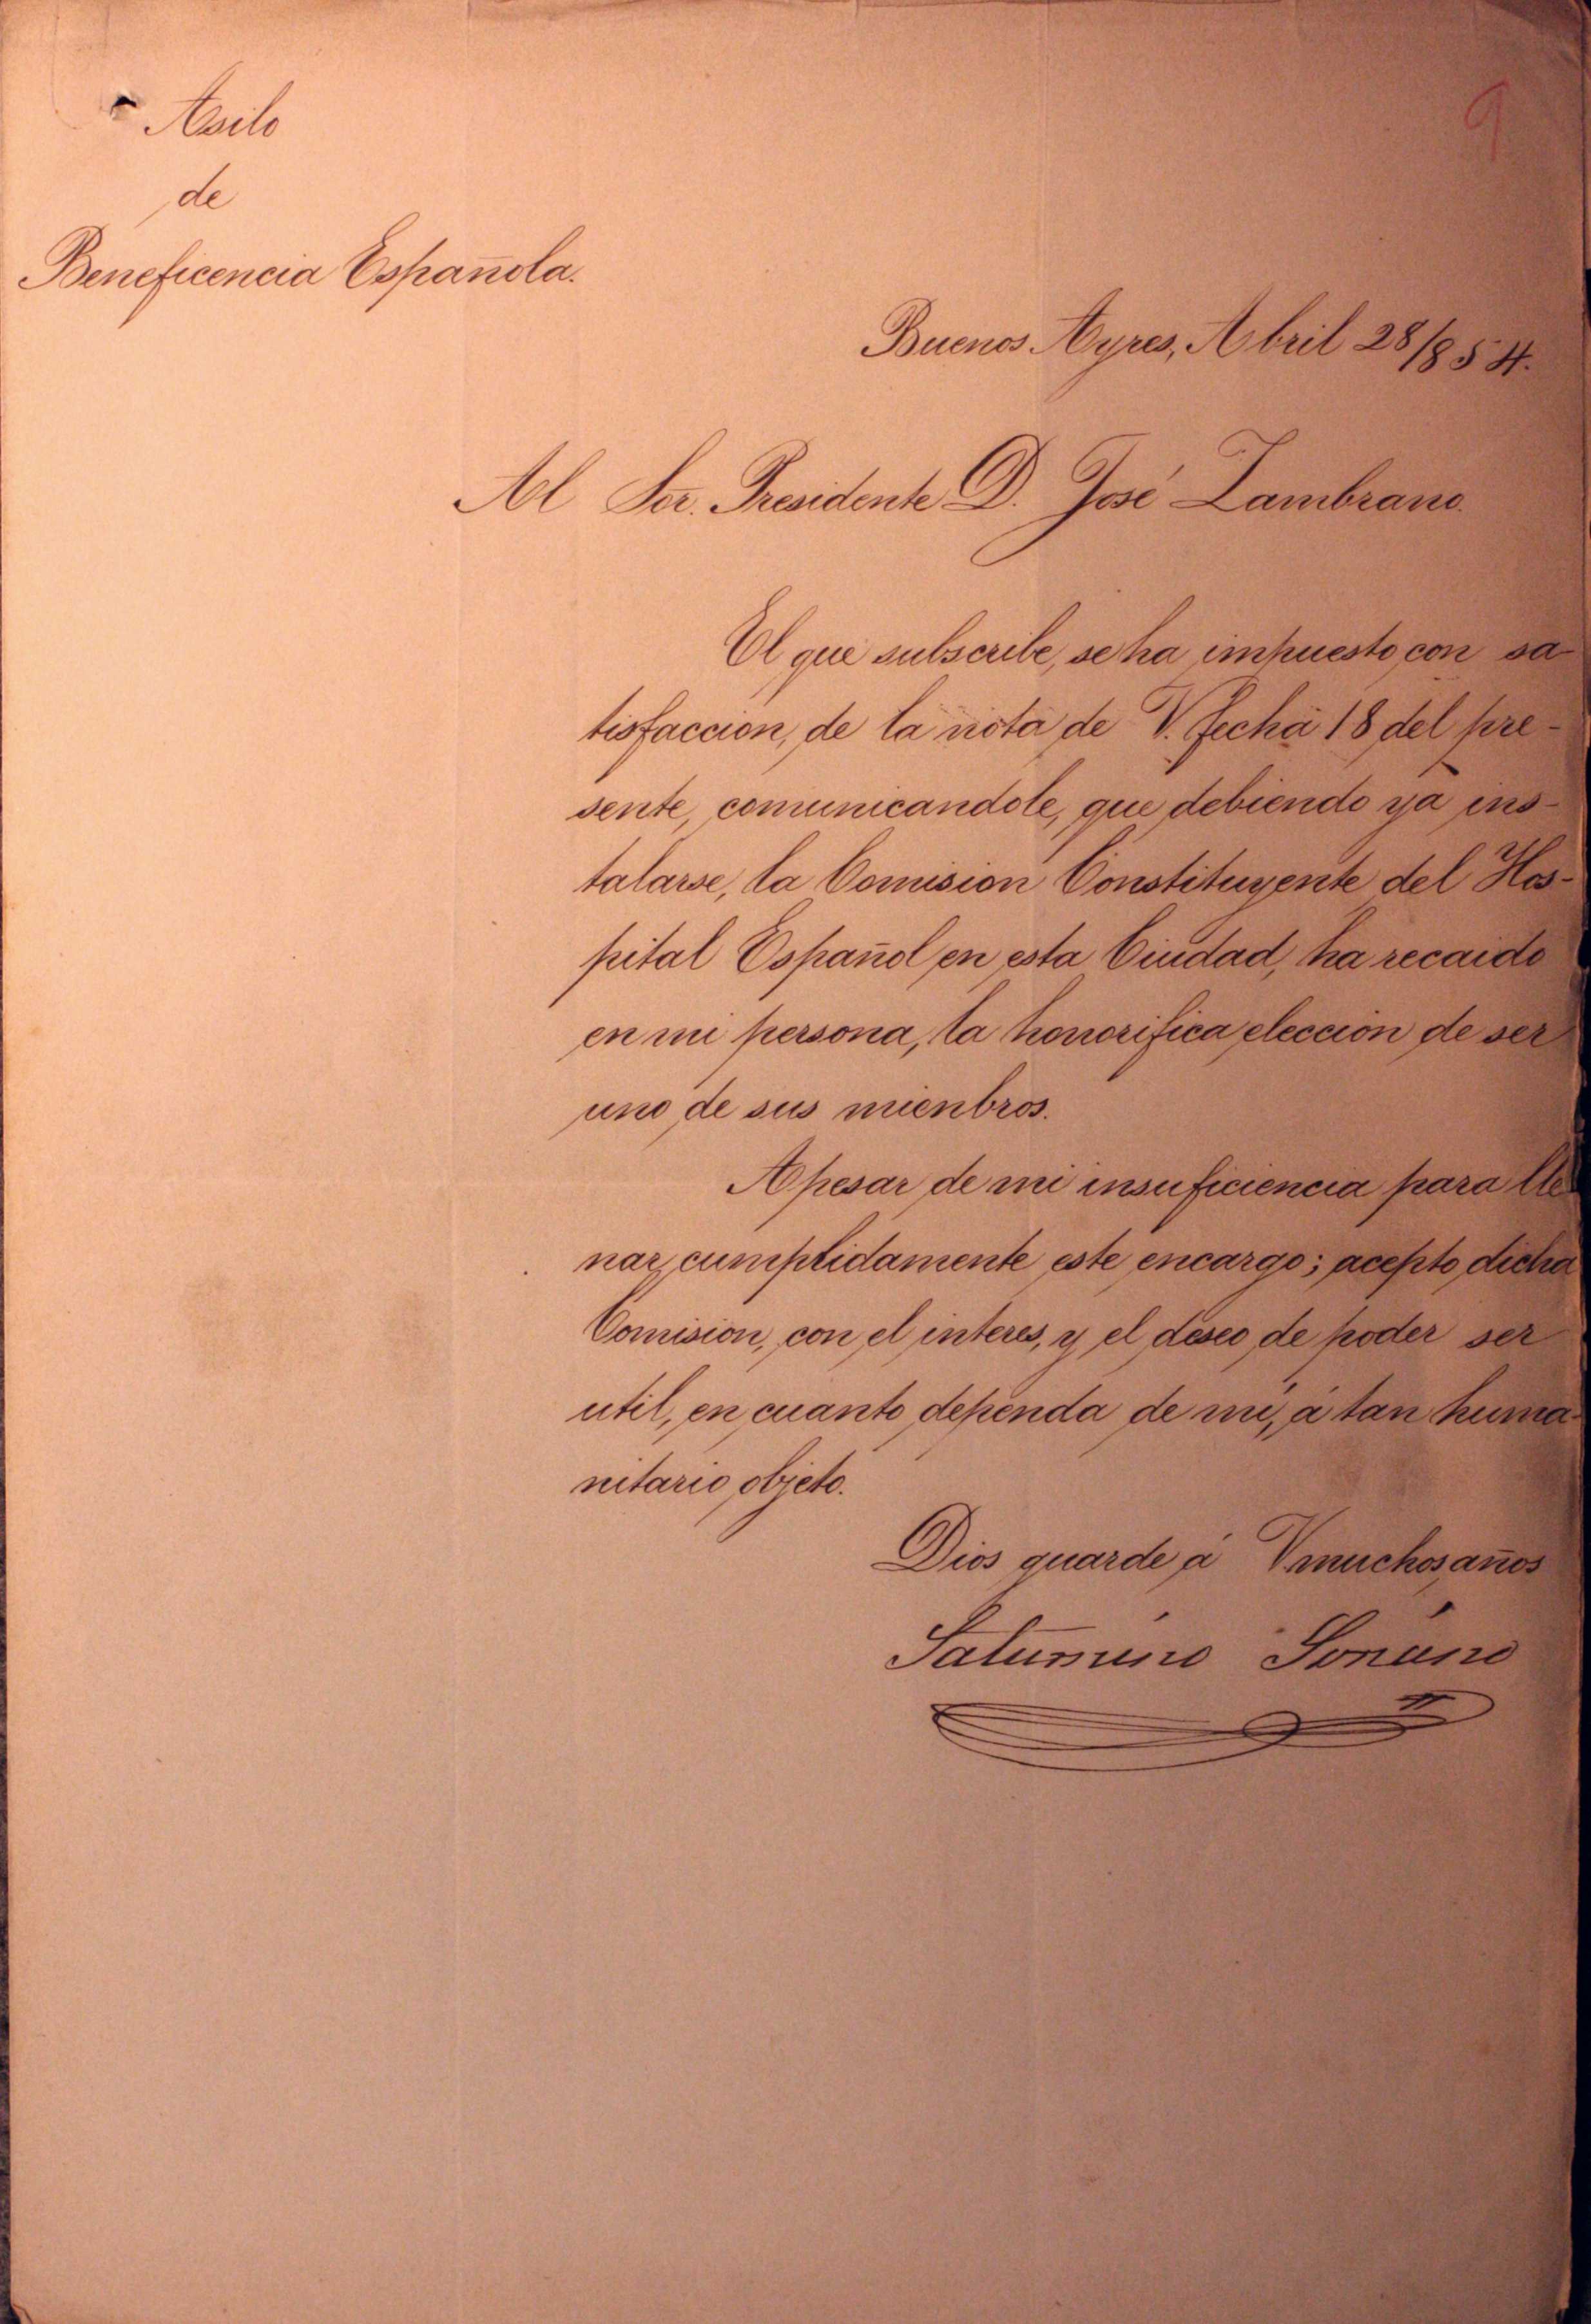 9
Asilo
de
Beneficencia Española.
Buenos Ayres, Abril 28/854.
Al Sor. Presidente D. José Zambrano.
El que subscribe, se ha impuesto, con sa-
tisfaccion, de la nota de V. fecha 18 del pre-
sente, comunicandole, que debiendo ya ins-
talarse, la Comision Constituyente del Hos-
pital Español en esta Ciudad, ha recaido
en mi persona, la honorifica eleccion de ser
uno de sus mienbros.
Apesar de mi insuficiencia para lle
nar cumplidamente este encargo; acepto dicha
Comision, con el interes, y el deseo de poder ser
util, en cuanto dependa de mi, á tan huma-
nitario objeto.
Dios guarde á V. muchos años
Saturnino